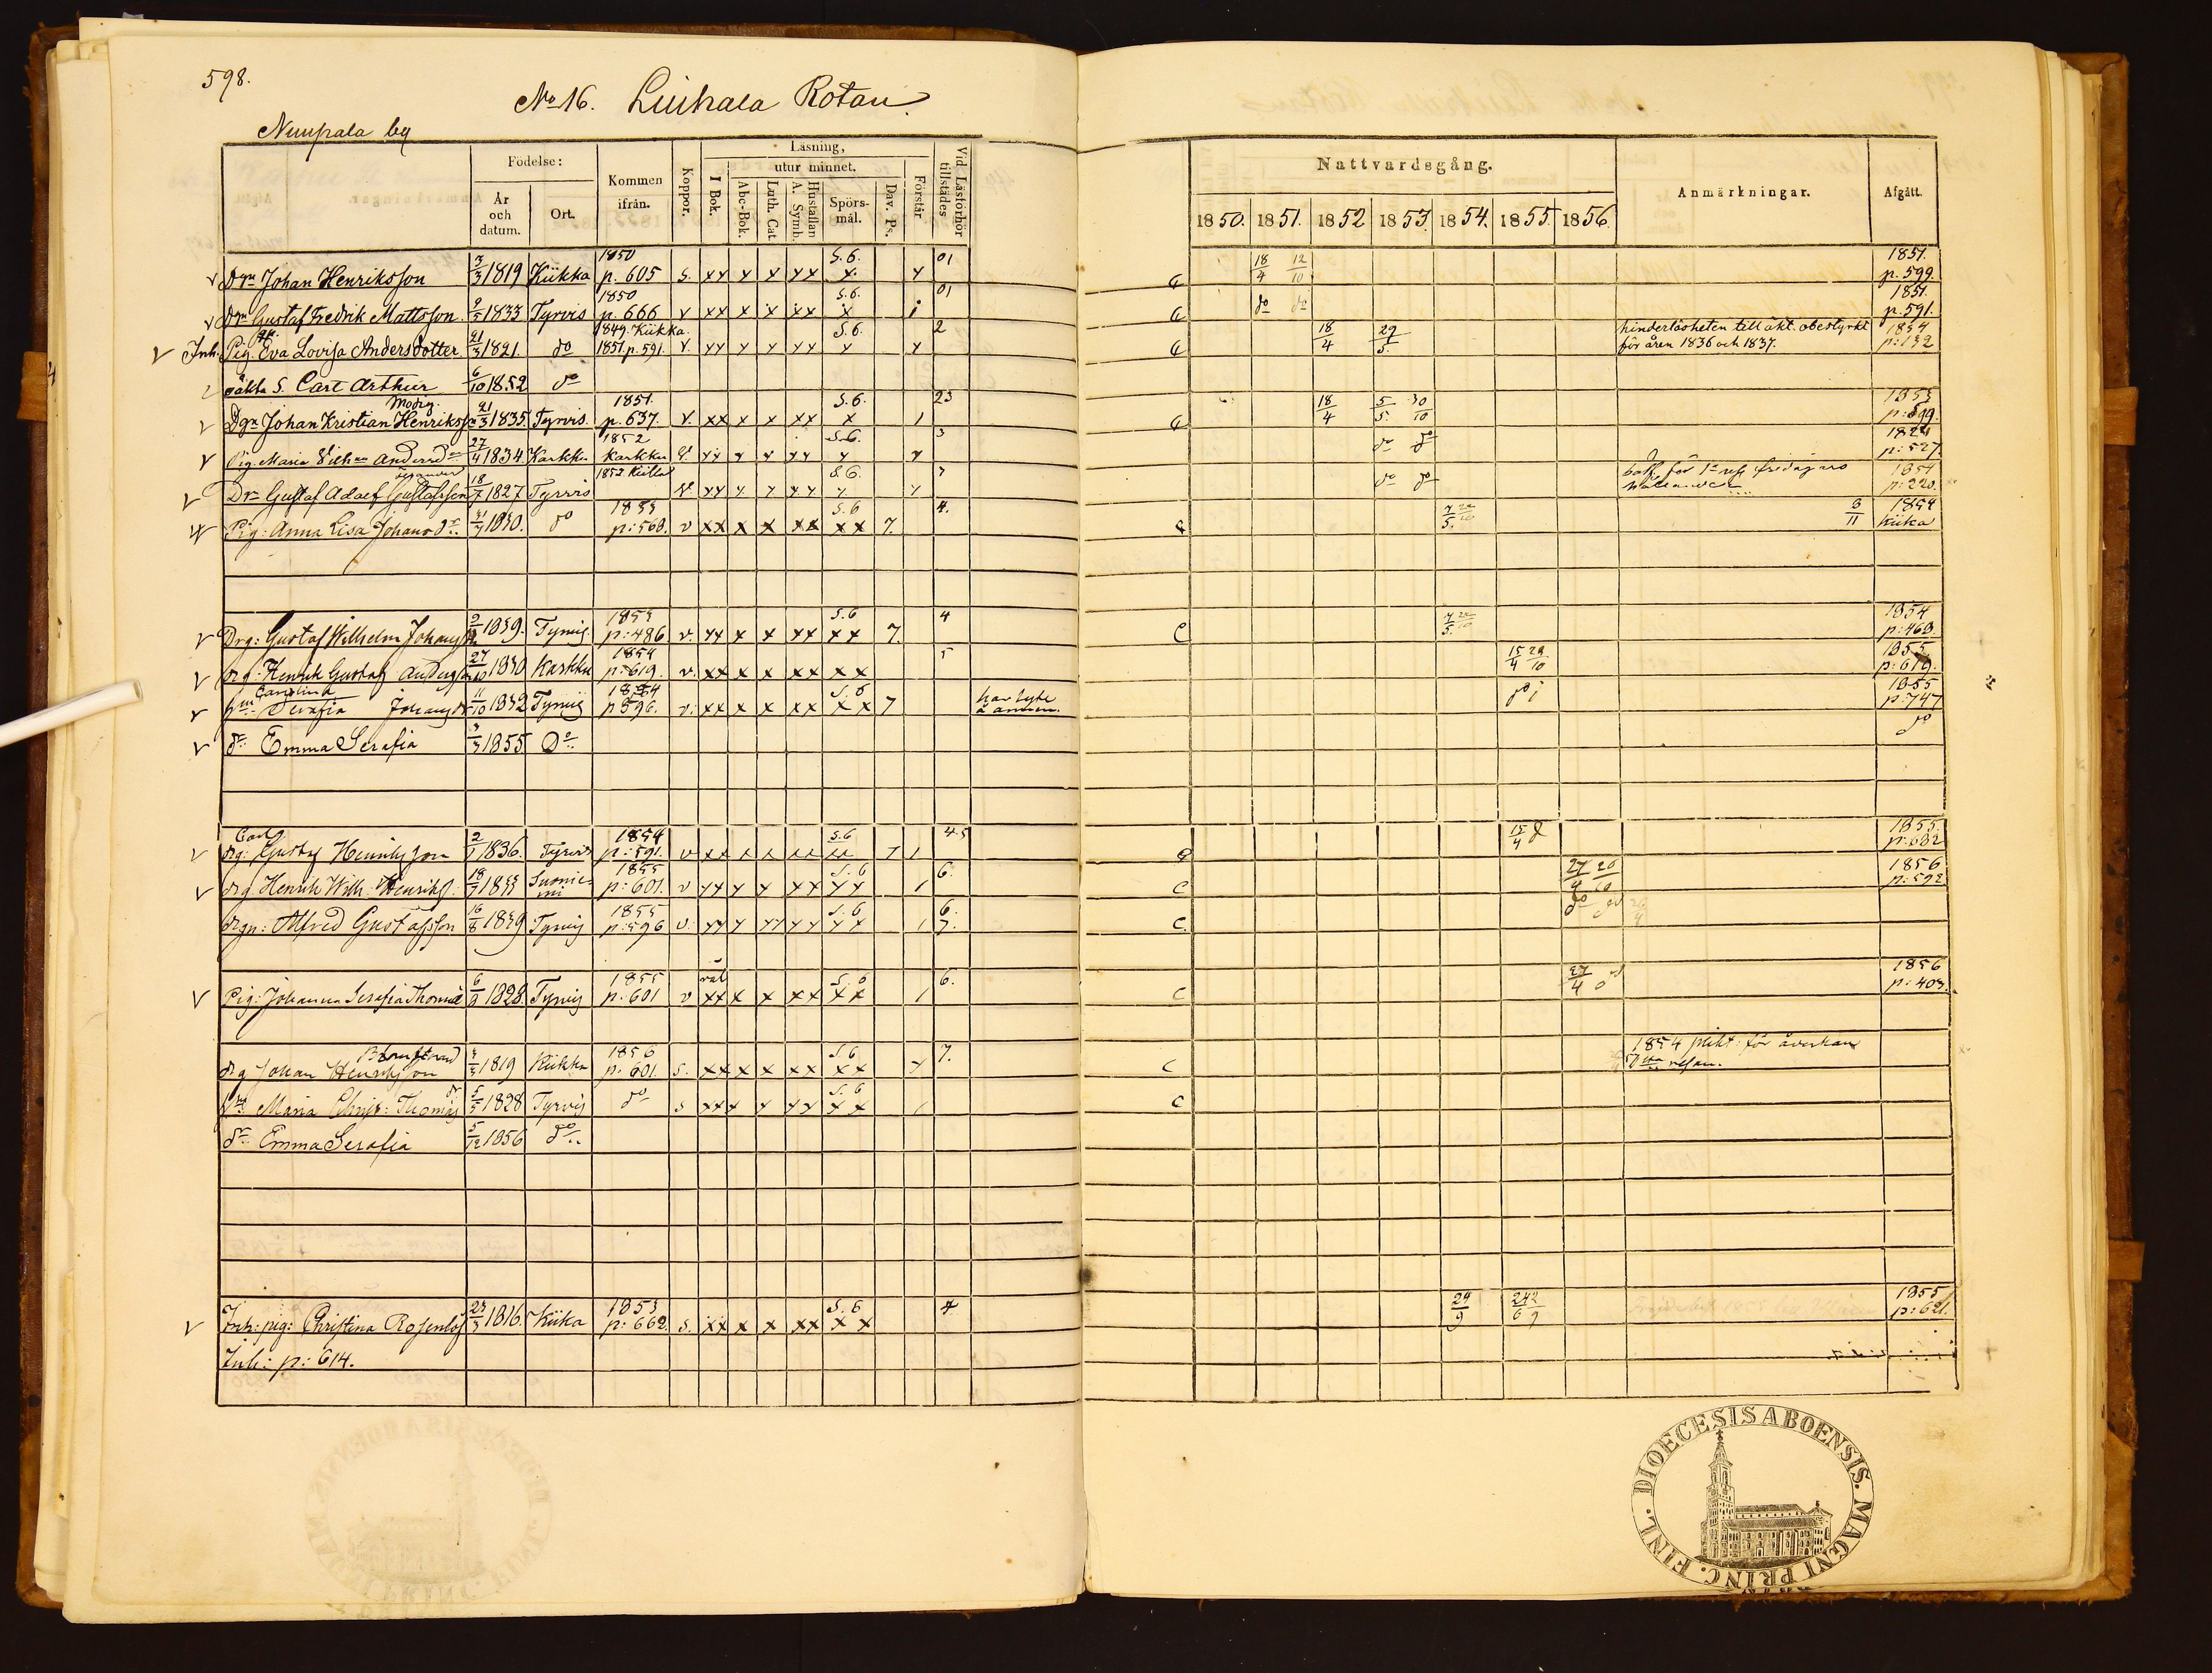 598.
No 16. Liuhala Rotan.
Nuupala by
Födelse:
År och datum.
Ort.
Kommen ifrån.
Koppor.
Läsning,
utur minnet.
I Bok.
Abc-Bok.
Luth. Cat.
Hustaflan A. Symb.
Spörs-mål.
Dav. Ps.
Förstår
Vid Läsförhör tillstädes
Nattvardsgång.
1850. 1851. 1852 1853. 1854. 1855 1856.
Anmärkningar.
Afgått.
v Dgn Johan Henriksson 3/3 1819 Kiikka 1850 p. 605 S. xx x x xx S.6. x. 01 18/4 12/10 1851. p. 599.
v Dgn Gustaf Fredrik Mattsson 9/5 1833 Tyrvis 1850 p. 666 v xx x x xx S.6. x 01 do do 1851. p. 591.
v Inh. Pig. Eva Lovisa Andersdotter 21/3 1821. do 1849. Kiikka. 1851. p. 591. v. S.6. 2 18/4 29/5. hinderlösheten till äkt. obestyrkt för åren 1836 och 1837. 1854 p: 132
oäkta S. Carl Arthur 6/10 1852 do
Modig.
Dgn Johan Kristian Henrikss 21/3 1835. Tyrvis. 1851. p. 637. v. xx x x xx S.6. x 1 23 18/4 5/5. 30/10 1853 p: 599.
Pig. Maria Vilh:na Andersd:r 27/4 1834 Karkku 1852 Karkku S.6. 3 do do p: 527.
Dr Gustaf Adolf Gustafsson 18/7 1827 Tyrvis 1852. S.6. do do 1854 p: 220.
Pig: Anna Lisa Johansd:r 1830. do 1853 p: 568. v xx x x xx S.6 xx 7. 4. 8/11 1854 Kiika
v Drg: Gustaf Wilhelm Johanss 1839. Tyrvis. 1853 p: 486 v. xx x x xx S.6 xx 7. 4 1854 p: 468.
v drg: Henrik Gustaf Anderss 27/10 1830 Karkku 1854 p: 619. v. xx x x xx xx 5 15/4 29/10 1855 p: 619.
Carolina
v hu Serafia Johansd 11/10 1832 Tyrvis 1854 p 596. v. xx x x xx S.6 xx 7 har lyte 1855 p: 747
v dr: Emma Serafia 1855 Do do
Carl
v drg: Gustaf Henriksson 2/1 1836. Tyrvis 1854 p: 591. v xx x x xx S.6 xx 7 1 4.5 15/4 1855. p: 682
v drg Henrik Wilh: Henriks: 18/7 1833 Suoniemi 1855 p: 601. v S.6 1 6. 27/4 26/10 1856 p: 592.
drgn: Alfred Gustafsson 16/8 1839 Tyrvis 1855 p: 596 v. S.6 1 6. 7. do do
v Pig: Johanna Serafia Thomasd 6/9 1828. Tyrvis 1855 p. 601 v xx x x xx S.6 xx 1 6. 27/4 1856 p: 403.
drg Johan Henriksson 3/3 1819 Kiikka 1856 p. 601. S. xx x x xx S.6 xx 7. 1854 plikt: för åverkan resan.
hu Maria Christ: Thomasd 5/5 1828 Tyrvis do S S.6 1
dr: Emma Serafia 5/12 1856 do
v Inh: pig: Christina Rosenlöf 23/3 1816. Kiika 1853 p: 662. S. xx x x xx S.6 xx 4 29/9 1855 p: 621.
Inh: p: 614.
DIOECESIS ABOENSIS. MAGNI PRINC. FINL.